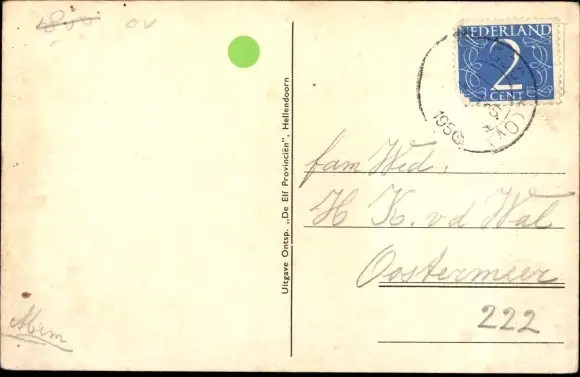 OV
NEDERLAND
2
CENT
1950
Uitgave Ontsp. „De Elf Provinciën", Hellendoorn
fam Wed:
H K. v d Wal
Oostermeer
222